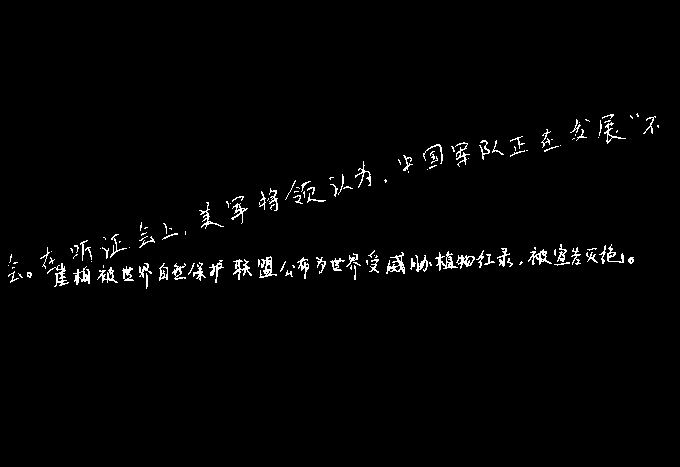 会。在听证会上,美军将领认为,中国军队正在发展“不
崖柏被世界自然保护联盟公布为世界受威胁植物红录,被宣告灭绝」。